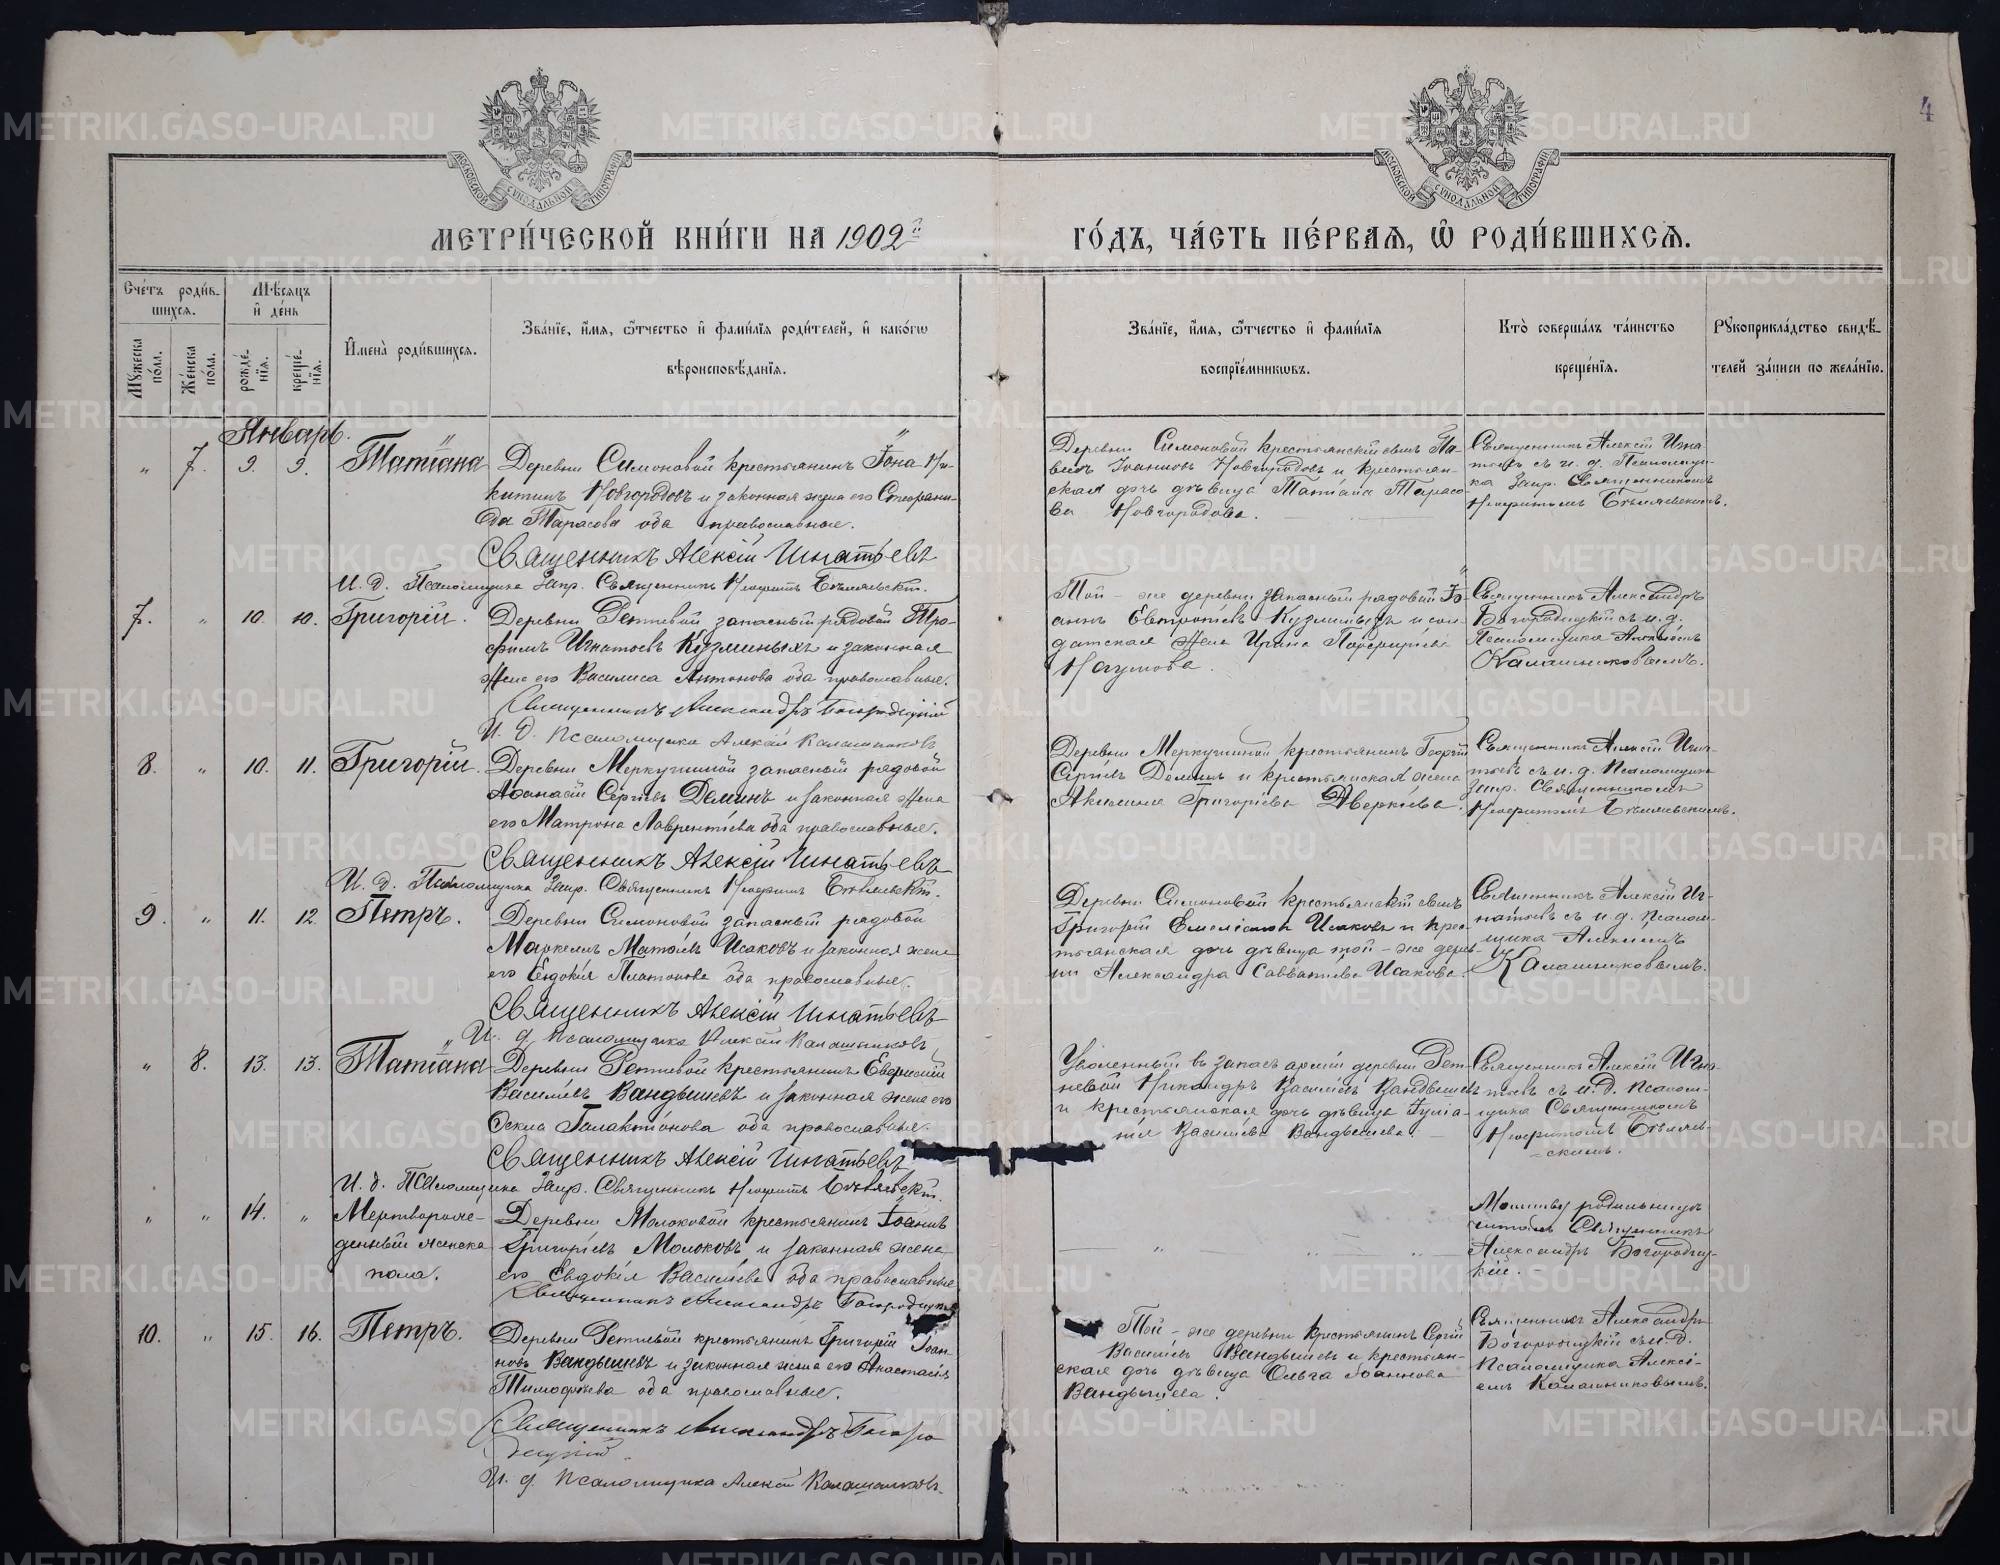 4
МОСКОВСКОЙ СѴНОДАЛЬНОЙ ТИПОГРАФІИ
МОСКОВСКОЙ СѴНОДАЛЬНОЙ ТИПОГРАФІИ
МЕТРИ́ЧЕСКОЙ КНИ́ГИ НА 1902й
ГО́ДЪ, ЧА́СТЬ ПЕ́РВАѦ, Ѡ РОДИ́ВШИХСѦ.
Счётъ роди́вшихсѧ.
Мꙋ́жеска по́ла.
Же́нска по́ла.
Мѣ́сяцъ и҆ де́нь
рожде́нїѧ.
креще́нїѧ.
И҆мена̀ роди́вшихсѧ.
Зва́нїе, и҆́мѧ, ѻ҆́тчество и҆ фами́лїѧ роди́телей, и҆ како́гѡ
вѣроисповѣ́данїѧ.
Зва́нїе, и҆́мѧ, ѻ҆́тчество и҆ фами́лїѧ
воспрїе́мникѡвъ.
Кто̀ соверша́лъ та́инство
креще́нїѧ.
Рꙋкоприкла́дство свидѣ́-
телей за́писи по жела́нїю.
Январь.
" 7. 9. 9. Татіана
Деревни Симоновой крестьянинъ Іона Ни-
китинъ Новгородовъ и законная жена его Стефани-
да Тарасова оба православные.
Священникъ Алексій Игнатьевъ
И. д. Псаломщика Запр. Священникъ
Деревни Симоновой крестьянскій сынъ Па-
велъ Іоанновъ Новгородовъ и крестьян-
ская дочь дѣвица Татіана Тарасо-
ва Новгородова.
Священникъ Алексій Игна-
тьевъ съ и. д. Псаломщи-
ка Запр. Священникомъ
7. " 10. 10. Григорій.
Деревни Ретневой запасный рядовой Тро-
фимъ Игнатьевъ Кузминыхъ и законная
жена его Василиса Антонова оба православные.
Священникъ Александръ Богородицкій
И. д. Псаломщика Алексій Калашниковъ
Той-же деревни запасный рядовой Іо-
аннъ Евтропіевъ Кузминыхъ и сол-
датская жена Ирина Порфирьева
Наумова.
Священникъ Александръ
Богородицкій съ и. д.
Псаломщика Алексіемъ
Калашниковымъ.
8. " 10. 11. Григорій.
Деревни Меркушиной запасный рядовой
Аѳанасій Сергіевъ Деминъ и законная жена
его Матрона Лаврентіева оба православные.
Священникъ Алексій Игнатьевъ
И. д. Псаломщика Запр. Священникъ
Деревни Меркушиной крестьянинъ Георгій
Сергіевъ Деминъ и крестьянская жена
Григоріева Аверкіева.
Священникъ Алексій Игна-
тьевъ съ и. д. Псаломщика
Запр. Священникомъ
9. " 11. 12. Петръ.
Деревни Симоновой запасный рядовой
Исаковъ и законная жена
его Евдокія Платонова оба православные.
Священникъ Алексій Игнатьевъ
И. д. Псаломщика Алексій Калашниковъ
Деревни Симоновой крестьянскій сынъ
Григорій Исаковъ и крес-
тьянская дочь дѣвица той-же дерев-
ни Александра Савватіева Исакова.
Священникъ Алексій Иг-
натьевъ съ и. д. Псалом-
щика Алексіемъ
Калашниковымъ.
" 8. 13. 13. Татіана
Деревни Ретневой крестьянинъ
Васильевъ Вандышевъ и законная жена его
Галактіонова оба православные.
Священникъ Алексій Игнатьевъ
И. д. Псаломщика Запр. Священникъ
Уволенный въ запасъ арміи деревни Рет-
невой Никандръ Васильевъ Вандышевъ
и крестьянская дочь дѣвица Іуліа-
нія Васильева Вандышева.
Священникъ Алексій Игна-
тьевъ съ и. д. Псалом-
щика Священникомъ
" " 14. " Мертворож-
денный женска
пола.
Деревни Молоковой крестьянинъ Іоаннъ
Григорьевъ Молоковъ и законная жена
его Евдокія Васильева оба православные
Священникъ Александръ Богородицкій
Молитву родильницѣ
читалъ Священникъ
Александръ Богородиц-
кій.
10. " 15. 16. Петръ.
Деревни Ретневой крестьянинъ Григорій Іоан-
новъ Вандышевъ и законная жена его Анастасія
Тимофеева оба православные.
Священникъ Александръ Богоро
дицкій
И. д. Псаломщика Алексій Калашниковъ.
Той-же деревни крестьянинъ Сергій
Васильевъ Вандышевъ и крестьян-
ская дочь дѣвица Ольга Іоаннова
Вандышева.
Священникъ Александръ
Богородицкій съ и. д.
Псаломщика Алексі-
емъ Калашниковымъ.
METRIKI.GASO-URAL.RU